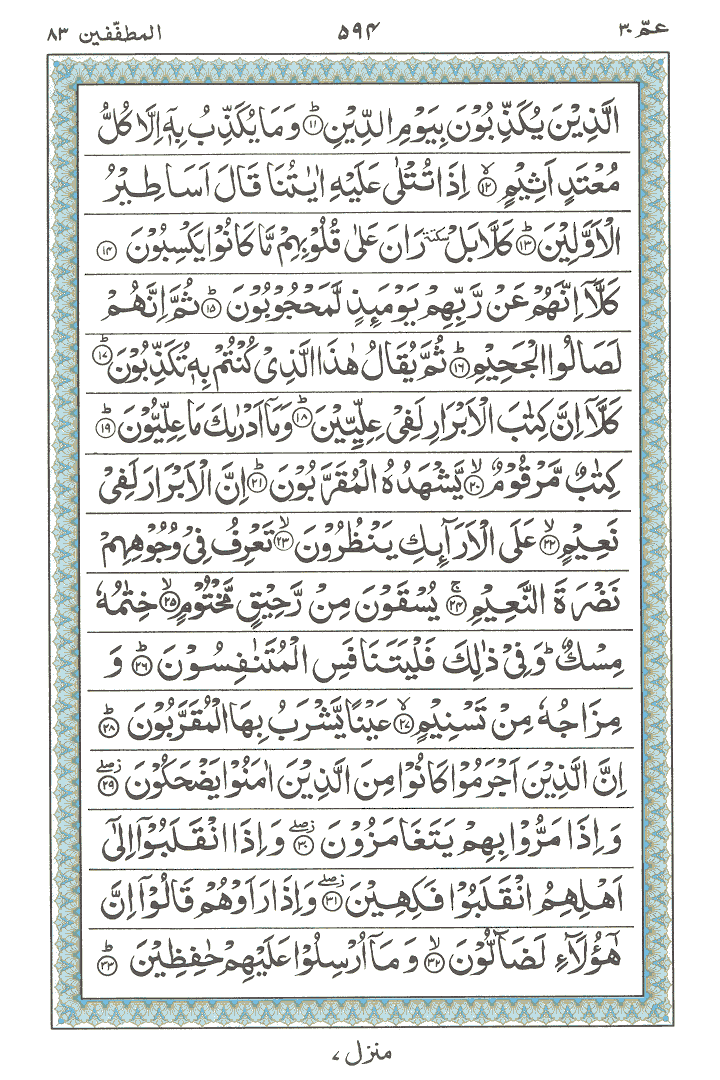 عمّ ٣٠ ٥٩٤ المطفّفين ٨٣
الَّذِيْنَ يُكَذِّبُوْنَ بِيَوْمِ الدِّيْنِ ؕ﴿۱۱﴾ وَ مَا يُكَذِّبُ بِهٖۤ اِلَّا كُلُّ
مُعْتَدٍ اَثِيْمٍ ۙ﴿۱۲﴾ اِذَا تُتْلٰى عَلَيْهِ اٰيٰتُنَا قَالَ اَسَاطِيْرُ
الْاَوَّلِيْنَ ؕ﴿۱۳﴾ كَلَّا بَلْ ٚ سكتة رَانَ عَلٰى قُلُوْبِهِمْ مَّا كَانُوْا يَكْسِبُوْنَ ﴿۱۴﴾
كَلَّاۤ اِنَّهُمْ عَنْ رَّبِّهِمْ يَوْمَىِٕذٍ لَّمَحْجُوْبُوْنَ ؕ﴿۱۵﴾ ثُمَّ اِنَّهُمْ
لَصَالُوا الْجَحِيْمِ ؕ﴿۱۶﴾ ثُمَّ يُقَالُ هٰذَا الَّذِيْ كُنْتُمْ بِهٖ تُكَذِّبُوْنَ ؕ﴿۱۷﴾
كَلَّاۤ اِنَّ كِتٰبَ الْاَبْرَارِ لَفِيْ عِلِّيِّيْنَ ؕ﴿۱۸﴾ وَ مَاۤ اَدْرٰىكَ مَا عِلِّيُّوْنَ ؕ﴿۱۹﴾
كِتٰبٌ مَّرْقُوْمٌ ۙ﴿۲۰﴾ يَّشْهَدُهُ الْمُقَرَّبُوْنَ ؕ﴿۲۱﴾ اِنَّ الْاَبْرَارَ لَفِيْ
نَعِيْمٍ ۙ﴿۲۲﴾ عَلَى الْاَرَآىِٕكِ يَنْظُرُوْنَ ۙ﴿۲۳﴾ تَعْرِفُ فِيْ وُجُوْهِهِمْ
نَضْرَةَ النَّعِيْمِ ۚ﴿۲۴﴾ يُسْقَوْنَ مِنْ رَّحِيْقٍ مَّخْتُوْمٍ ۙ﴿۲۵﴾ خِتٰمُهٗ
مِسْكٌ ؕ وَ فِيْ ذٰلِكَ فَلْيَتَنَافَسِ الْمُتَنٰفِسُوْنَ ؕ﴿۲۶﴾ وَ
مِزَاجُهٗ مِنْ تَسْنِيْمٍ ۙ﴿۲۷﴾ عَيْنًا يَّشْرَبُ بِهَا الْمُقَرَّبُوْنَ ؕ﴿۲۸﴾
اِنَّ الَّذِيْنَ اَجْرَمُوْا كَانُوْا مِنَ الَّذِيْنَ اٰمَنُوْا يَضْحَكُوْنَ ؗۖ﴿۲۹﴾
وَ اِذَا مَرُّوْا بِهِمْ يَتَغَامَزُوْنَ ؗۖ﴿۳۰﴾ وَ اِذَا انْقَلَبُوْۤا اِلٰۤى
اَهْلِهِمُ انْقَلَبُوْا فَكِهِيْنَ ؗۖ﴿۳۱﴾ وَ اِذَا رَاَوْهُمْ قَالُوْۤا اِنَّ
هٰۤؤُلَآءِ لَضَآلُّوْنَ ۙ﴿۳۲﴾ وَ مَاۤ اُرْسِلُوْا عَلَيْهِمْ حٰفِظِيْنَ ؕ﴿۳۳﴾
منزل ٧